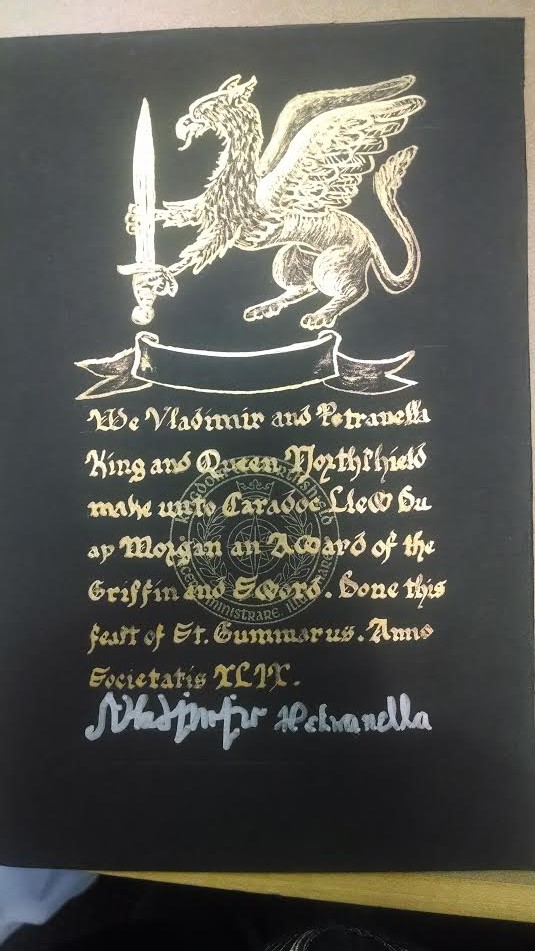 We Vladimir and Petranella
King and Queen Northshield
make unto Caradoc Llew Du
ap Morgan an Award of the
Griffin and Sword. Done this
feast of St. Gummarus. Anno
Societatis XLIX.
Vladimir Petranella
MINISTRARE